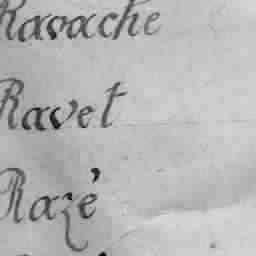 Ravache
Ravet
Razé